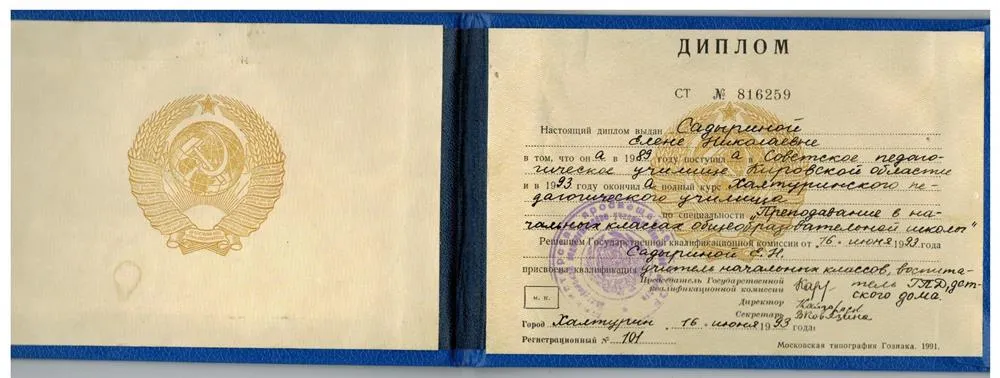 ДИПЛОМ
СТ № 816259
Настоящий диплом выдан Садыриной
Елене Николаевне
в том, что она в 1989 году поступила в Советское педаго-
гическое училище Кировской области
и в 1993 году окончила полный курс Халтуринского пе-
дагогического училища
по специальности "Преподавание в на-
чальных классах общеобразовательной школы"
Решением Государственной квалификационной комиссии от 16 июня 1993 года
Садыриной Е. Н.
присвоена квалификация учитель начальных классов, воспита-
Председатель Государственной
квалификационной комиссии
тель ГПД, дет-
ского дома.
Директор
Секретарь
м. п.
Город Халтурин 16 июня 1993 года
Регистрационный № 101
Московская типография Гознака. 1991.